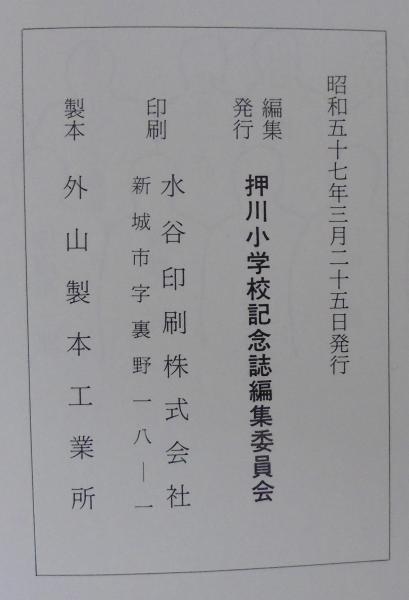 昭和五十七年三月二十五日発行
編集
発行
押川小学校記念誌編集委員会
印刷
水谷印刷株式会社
新城市字裏野一八―一
製本
外山製本工業所